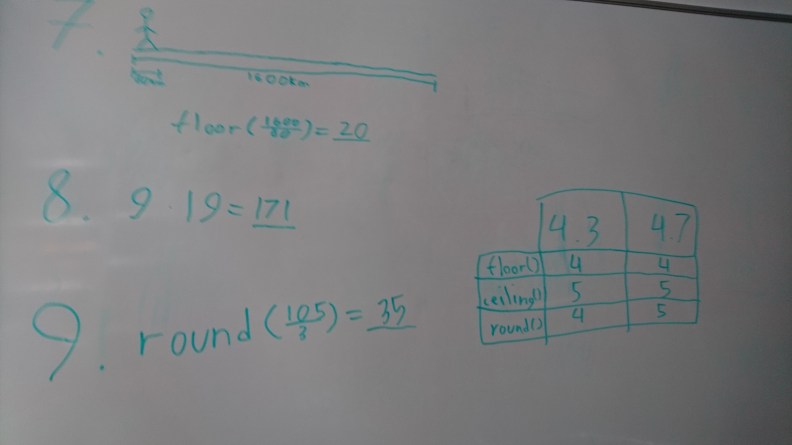 7.
1600km
floor(1600/80)=20
8. 9·19=171
9. round(105/3)=35
4.3 4.7
floor() 4 4
ceiling() 5 5
round() 4 5